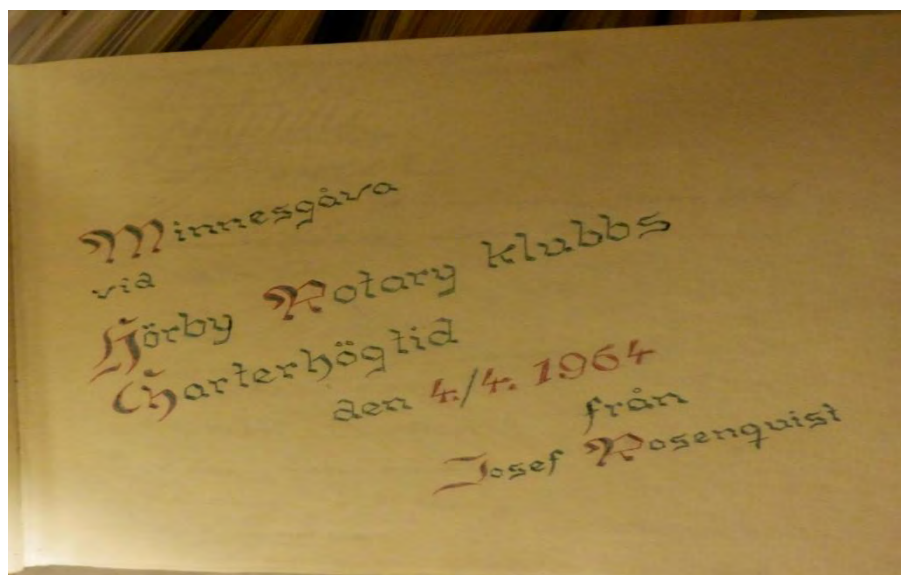 Minnesgåva
vid
Hörby Rotary klubbs
Charterhögtid
den 4/4. 1964
från
Josef Rosenquist